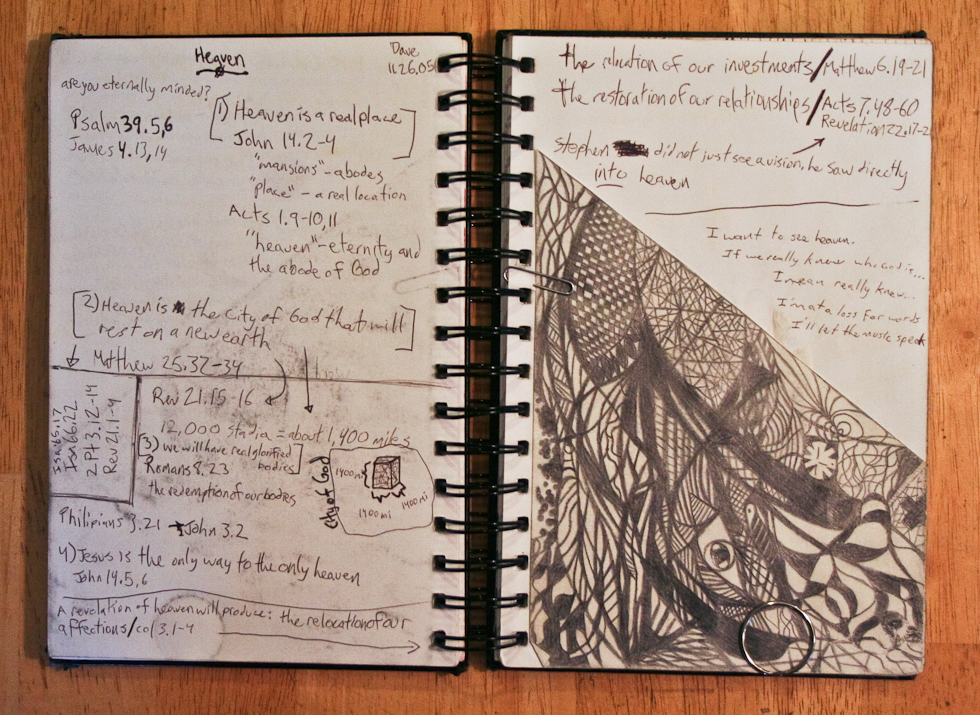 Heaven
Dave
11.26.05
are you eternally minded?
Psalm 39.5,6
James 4.13,14
1) Heaven is a real place
John 14.2-4
"mansions" - abodes
"place" - a real location
Acts 1.9-10,11
"heaven" - eternity and
the abode of God
2) Heaven is the city of God that will
rest on a new earth
Matthew 25.32-34
Isa 65.17
Isa 66.22
2 Pt 3.12-14
Rev 21.1-4
Rev 21.15-16
12,000 stadia = about 1,400 miles
3) we will have real glorified
bodies
Romans 8.23
the redemption of our bodies
City of God
1400 mi
1400 mi
1400 mi
Philipians 3.21 1 John 3.2
4) Jesus is the only way to the only heaven
John 14.5,6
A revelation of heaven will produce: the relocation of our
affections/col 3.1-4
the relocation of our investments/Matthew 6.19-21
the restoration of our relationships/Acts 7.48-60
Revelation 22.17-2
Stephen did not just see a vision, he saw directly
into heaven
I want to see heaven.
If we really knew who God is...
I mean really knew...
I'm at a loss for words
I'll let the music speak